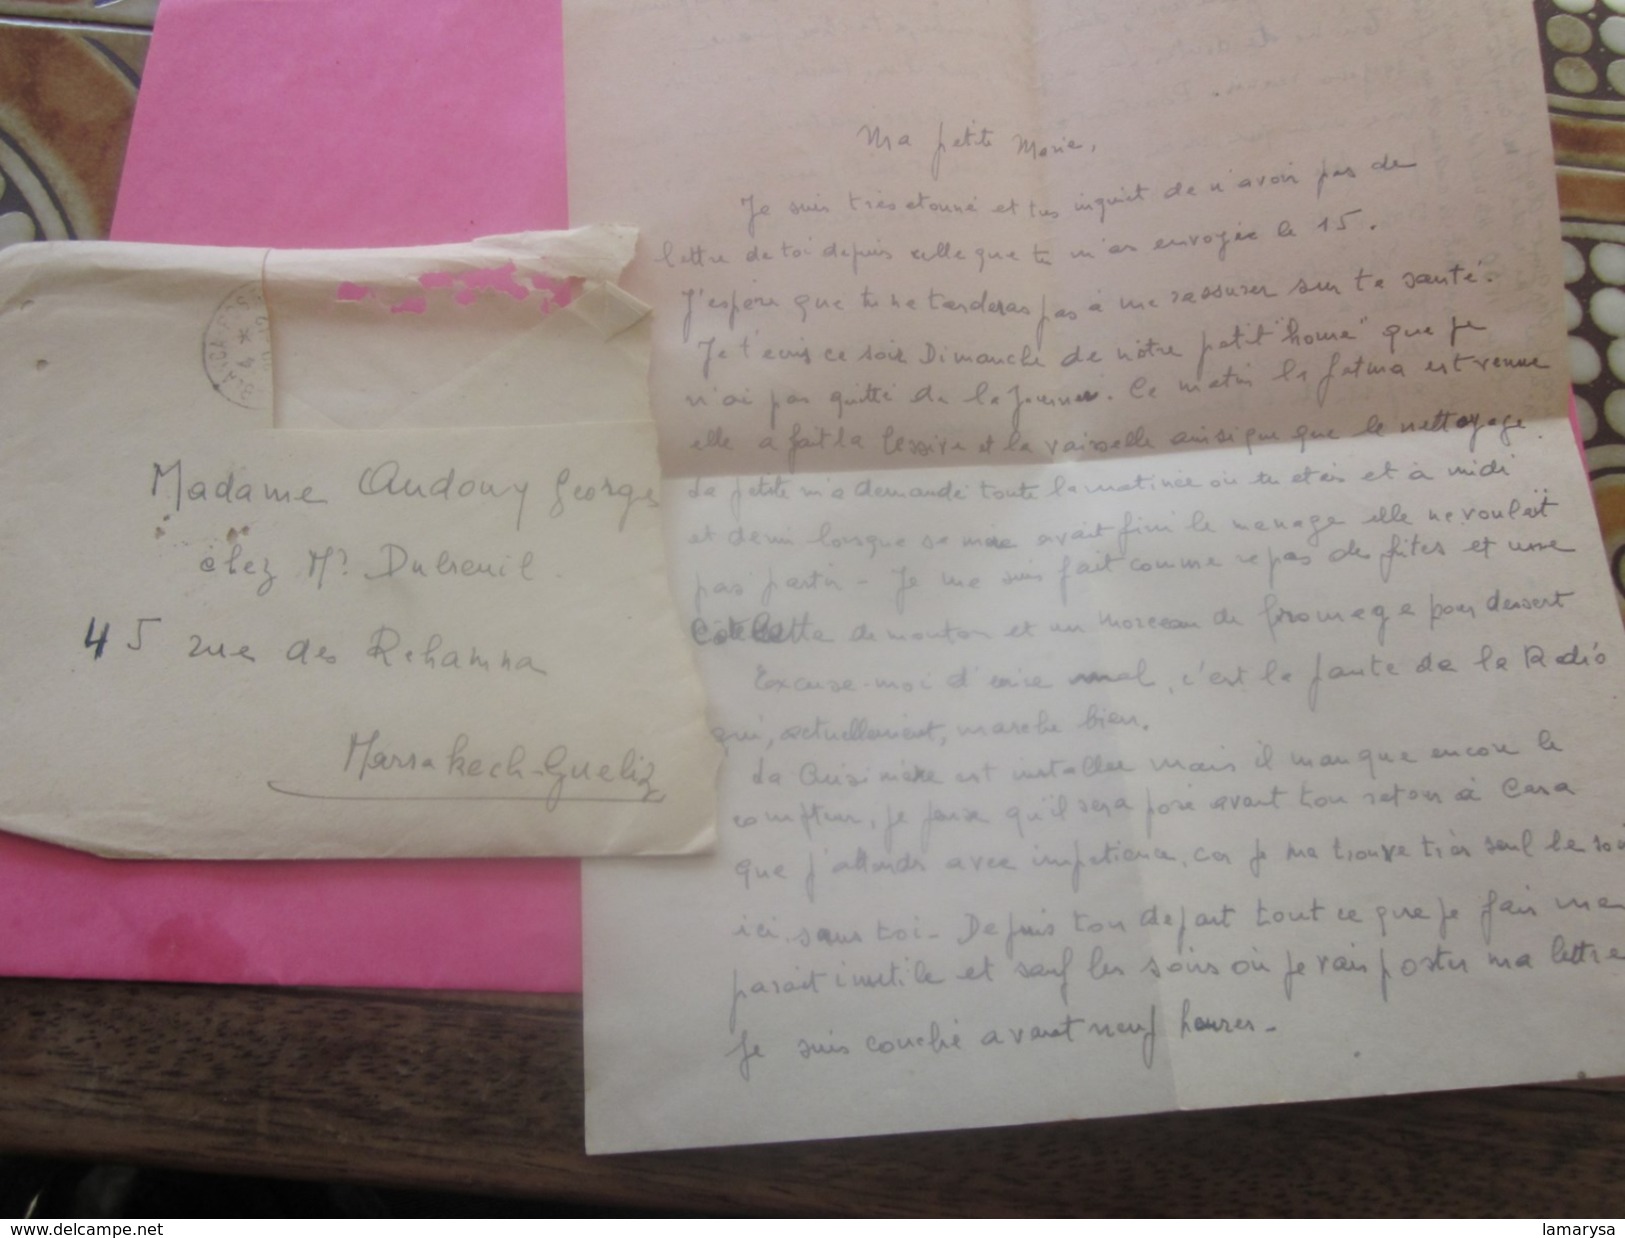 Madame Audouy Georges
chez Mr. Dutreuil
45 rue des Rehamna
Marrakech-Gueliz
Ma petite Marie,
Je suis très etonné et tres inquiet de n'avoir pas de
lettre de toi depuis celle que tu m'as envoyée le 15.
J'espère que tu ne tarderas pas à me rassurer sur ta santé.
Je t'ecris ce soir Dimanche de nôtre petit "home" que je
n'ai pas quitté de la journée. Ce matin la fatma est venue
elle a fait la lessive et la vaisselle ainsi que que le nettoyage.
La petite m'a demandé toute la matinée où tu etais et à midi
et demi lorsque sa mère avait fini le menage elle ne voulait
pas partir - Je me suis fait comme repas des frites et une
côtelette de mouton et un morceau de fromage pour dessert
Excuse-moi d'ecrire mal, c'est la faute de la Radio
qui, actuellement, marche bien.
La Cuisinière est installée mais il manque encore le
compteur, je pense qu'il sera posé avant ton retour à Casa
que j'attends avec impatience, car je me trouve très seul le soir
ici, sans toi - Depuis ton depart tout ce que je fais me
parait inutile et sauf les soirs où je vais poster ma lettre
Je suis couché avant neuf heures -
www.delcampe.net
lamarysa